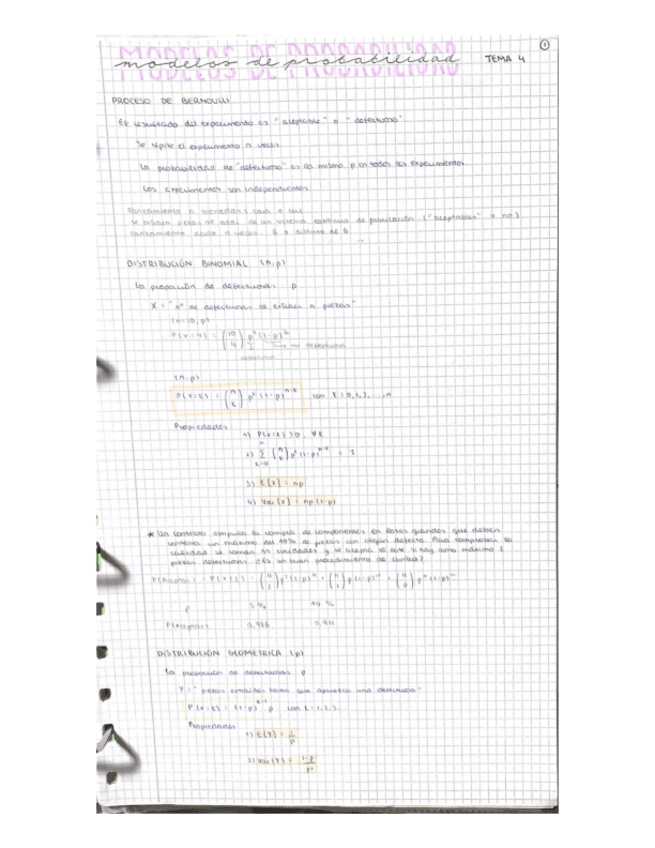 ①
MODELOS DE PROBABILIDAD
modelos de probabilidad TEMA 4
PROCESO DE BERNOULLI
El resultado del experimento es "aceptable" o "defectuoso"
Se repite el experimento n veces
La probabilidad de "defectuoso" es la misma p en todos los experimentos
Los experimentos son independientes
Lanzamiento n monedas: cara o cruz
se extraen piezas al azar de un sistema continuo de fabricación ("aceptables" o no)
Lanzamiento dado n veces: 6 o distinto de 6
DISTRIBUCIÓN BINOMIAL (n,p)
La proporción de defectuosas p
X = "nº de defectuosas al extraer n piezas"
(n=10, p)
P(X=4) = (10 4) p⁴ (1-p)⁶
no defectuosas
defectuosas
(n,p)
P(X=k) = (n k) pᵏ (1-p)ⁿ⁻ᵏ con k=0,1,2,...,n
Propiedades
1) P(X=k) ≥ 0, ∀k
2) Σ (n k) pᵏ (1-p)ⁿ⁻ᵏ = 1
3) E[X] = np
4) Var[X] = np(1-p)
* Un contrato estipula la compra de componentes en lotes grandes que deben
contener un máximo del 10% de piezas con algún defecto. Para comprobar la
calidad se toman 11 unidades y se acepta el lote si hay como máximo 2
piezas defectuosas. ¿Es un buen procedimiento de control?
P(Aceptar) = P(X≤2)
p 5% 10%
P(Aceptar)
DISTRIBUCIÓN GEOMÉTRICA (p)
La proporción de defectuosas p
Y = "piezas extraídas hasta que aparezca una defectuosa"
P(Y=k) = (1-p)ᵏ⁻¹ p con k=1,2,3...
Propiedades
1) E[Y] = 1/p
2) Var[Y] = (1-p)/p²